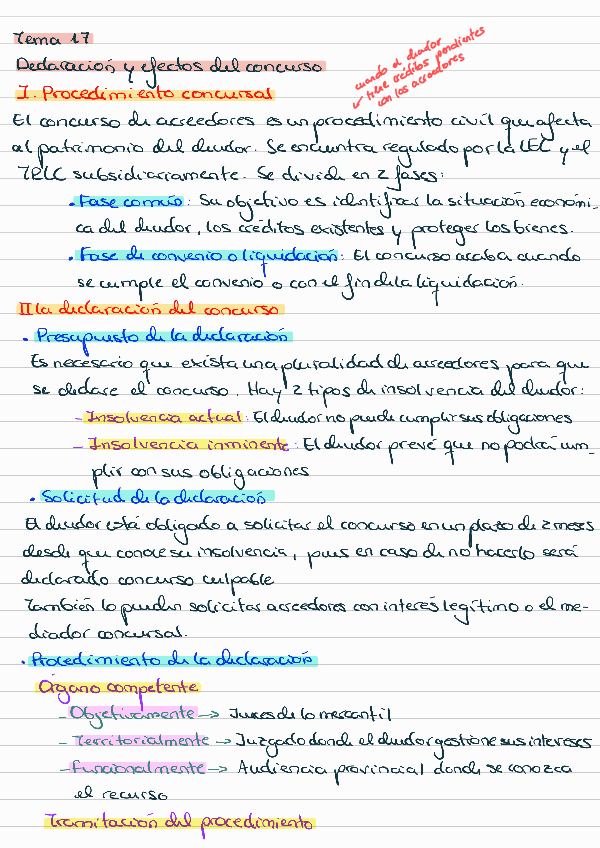 Tema 17
cuando el deudor
tiene créditos pendientes
con los acreedores
Declaración y efectos del concurso
I. Procedimiento concursal
El concurso de acreedores es un procedimiento civil que afecta
al patrimonio del deudor. Se encuentra regulado por la LEC y el
TRLC subsidiariamente. Se divide en 2 fases:
• Fase común: Su objetivo es identificar la situación económi-
ca del deudor, los créditos existentes y proteger los bienes.
• Fase de convenio o liquidación: El concurso acaba cuando
se cumple el convenio o con el fin de la liquidación.
II la declaración del concurso
• Presupuesto de la declaración
Es necesario que exista una pluralidad de acreedores para que
se declare el concurso. Hay 2 tipos de insolvencia del deudor:
- Insolvencia actual: El deudor no puede cumplir sus obligaciones
- Insolvencia inminente: El deudor prevé que no podrá cum-
plir con sus obligaciones
• Solicitud de la declaración
El deudor está obligado a solicitar el concurso en un plazo de 2 meses
desde que conoce su insolvencia, pues en caso de no hacerlo será
declarado concurso culpable
También lo pueden solicitar acreedores con interés legítimo o el me-
diador concursal.
• Procedimiento de la declaración
Órgano competente
- Objetivamente -> Jueces de lo mercantil
- Territorialmente -> Juzgado donde el deudor gestione sus intereses
- Funcionalmente -> Audiencia provincial donde se conozca
el recurso
Tramitación del procedimiento